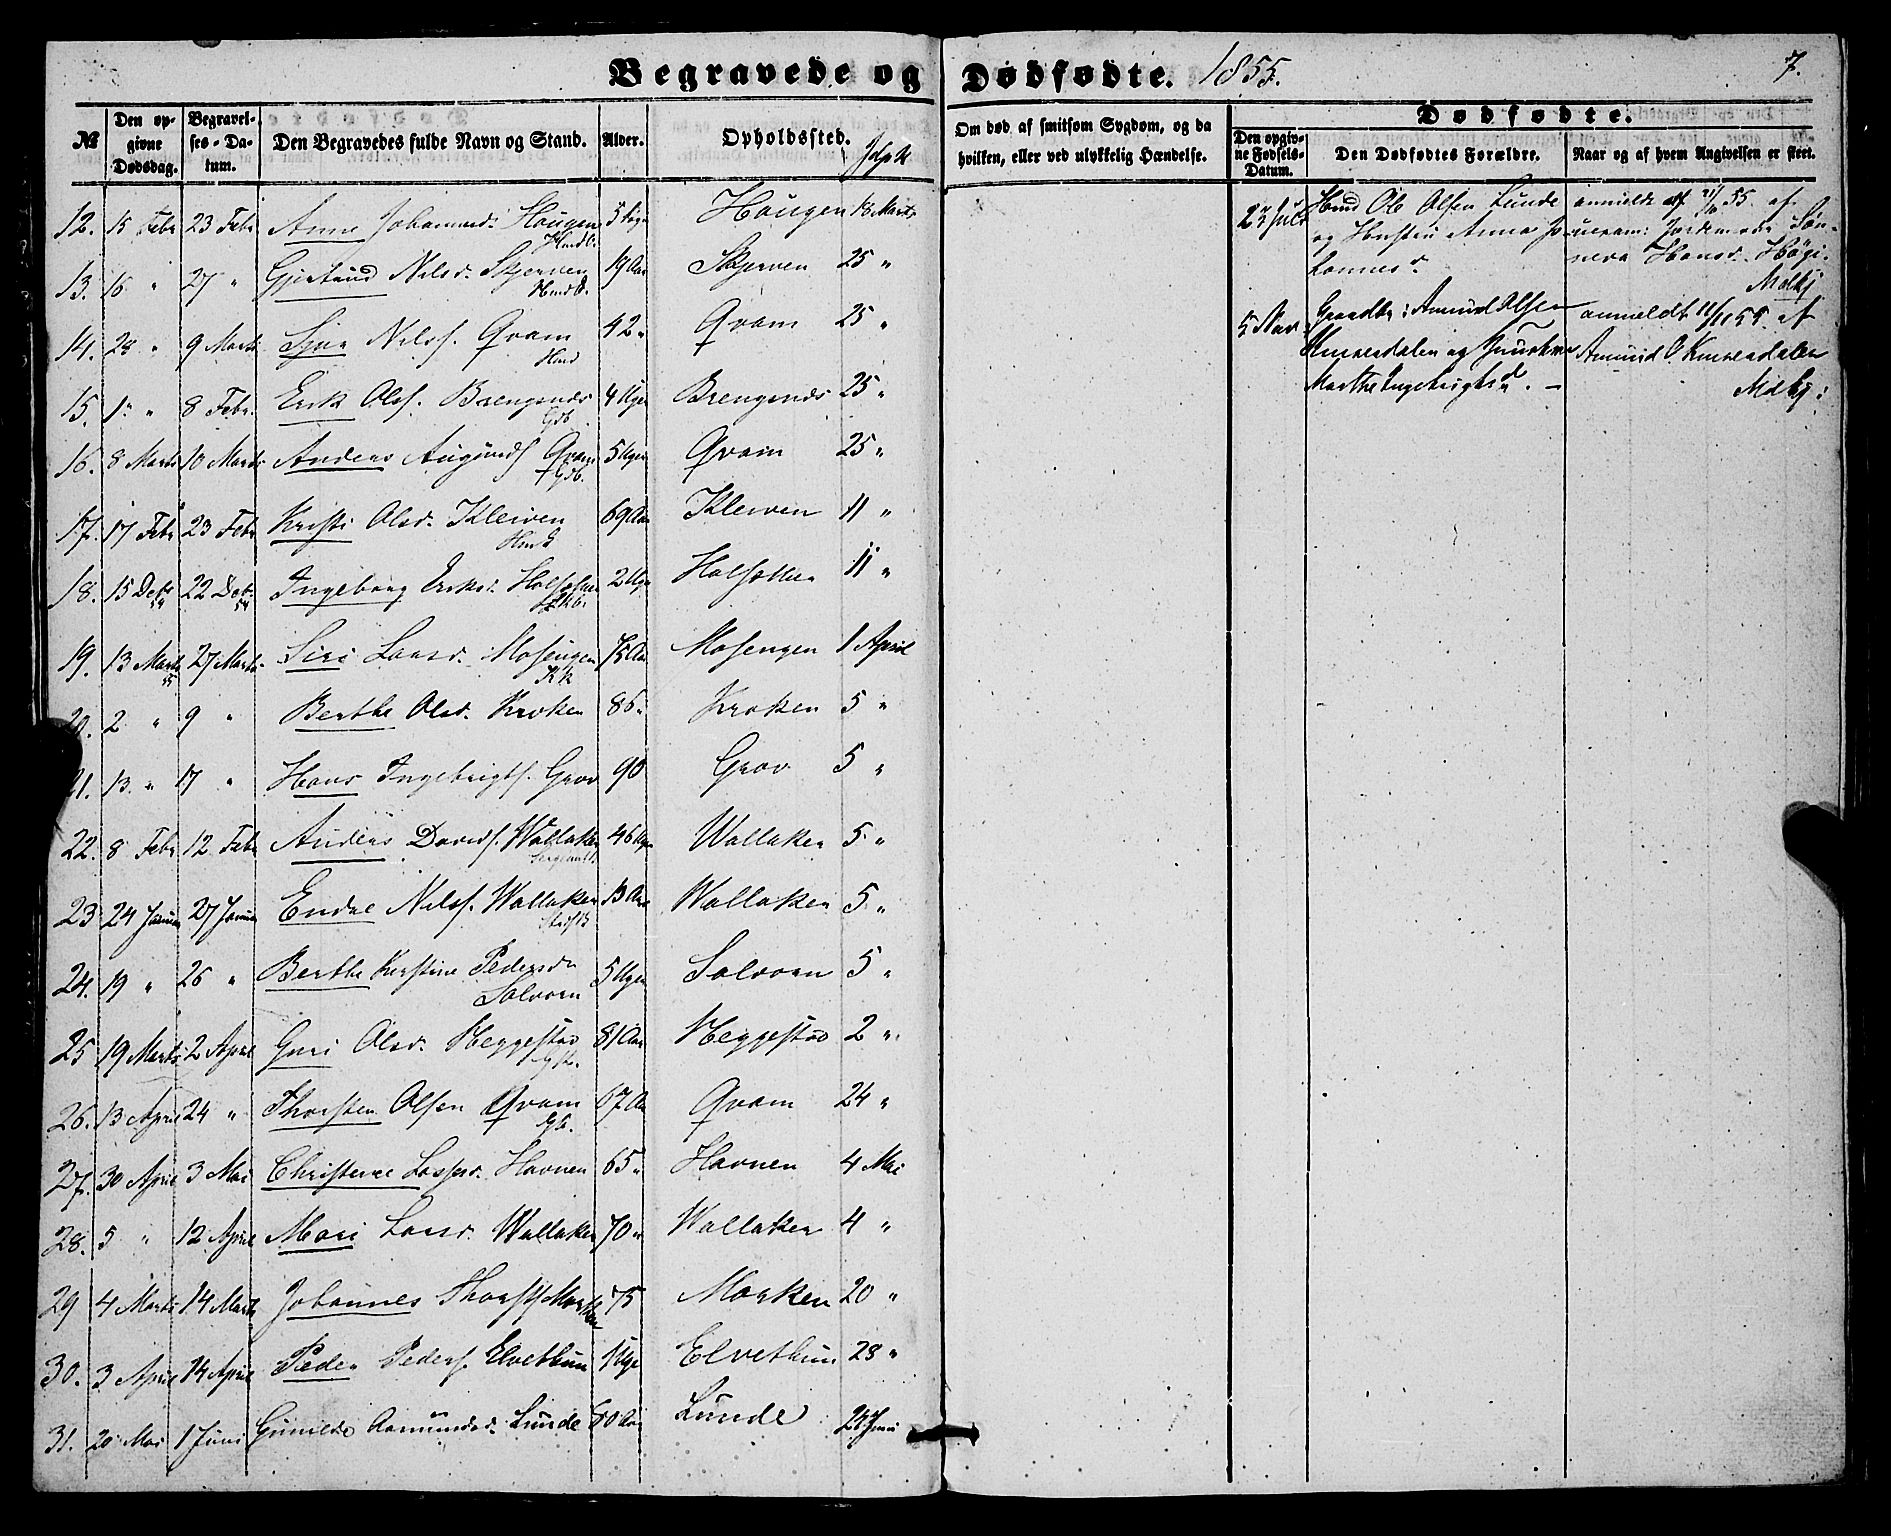 Begravede og Dødfødte. 1855. 7.
№ Den opgivne Dødsdag. Begravelses-Datum. Den Begravedes fulde Navn og Stand. Alder. Opholdssted. Jdpk
Om død af smitsom Sygdom, og da hvilken, eller ved ulykkelig Hændelse.
Dødfødte.
Den opgivne Fødsels-Datum. Den Dødfødtes Forældre. Naar og af hvem Angivelsen er skeet.
12. 15 Febr 23 Febr Anne Johannesd. Haugen 5 Haugen 18 Marts
Hmdb.
13. 16 " 27 " Gjertrud Nilsd. Skjerven 19 Aar Skjerven 25 "
Hmd D.
14. 28 " 9 Marts Nilss. Qvam 42 " Qvam 25 "
Hmd
15. 1 " 8 Febr. Erik Ols. Brengsnæs 4 Uger Brengsnæs 25 "
Gdb.
16. 8 Marts 10 Marts Anders Augunds Qvam 5 Uger Qvam 25 "
Gdb.
17. 17 Febr 23 Febr Kristi Olsd. Kleiven 69 Aar Kleiven 11 "
18. 15 Debr 54 22 Debr. 54 Ingeborg Eriksd. 2 Uger 11 "
19. 13 Marts 55 27 Marts Siri Larsd. Mosengen 75 Aar Mosengen 1 April
Kk
20. 2 " 9 " Berthe Olsd. Kroken 86 " Kroken 5 "
21. 13 " 17 " Hans Ingebrigts. Grov 90 Grov 5 "
22. 8 Febr 12 Febr Anders Davids. Wallaker 46 Uger Wallaker 5 "
23 24 Januar 27 Januar Endre Nilss. Wallaker 13 Aar Wallaker 5 "
24. 19 " 26 " Berthe Kirstine Pedersdr 5 Uger Solvorn 5 "
Solvorn
25 19 Marts 2 April Guri Olsd. Heggestad 81 Aar Heggestad 2 "
26. 13 April 24 " Thorsten Olsen Qvam 67 Aar Qvam 24 "
27. 30 April 3 Mai Christense Lassesd. Havnen 65 " Havnen 4 Mai
28. 5 " 12 April Mari Larsd. Wallaker 70 " Wallaker 4 "
29 4 Marts 14 Marts Johannes Thorsts. Marken 75 Marken 20 "
30. 3 April 14 April Peder Peders. Elvethun 1 Uge Elvethun 28 "
31. 20 Mai 1 Juni Gunilde Aamundsd. Lunde 80 Aar Lunde Juni
23 Juli Hmd Ole Olsen Lunde
og Hustru Anna Jo-
hannesd.
anmeldt 55 af
Jordemoder Sön-
neva Hansd.
Mdkj
5 Nov. Gaardbr: Amund Olsen
Kinserdalen og Hustru
Marthe Ingebrigtsd. -
anmeldt 11/11 55 af
Amund O. Kinserdalen
Mdkj: